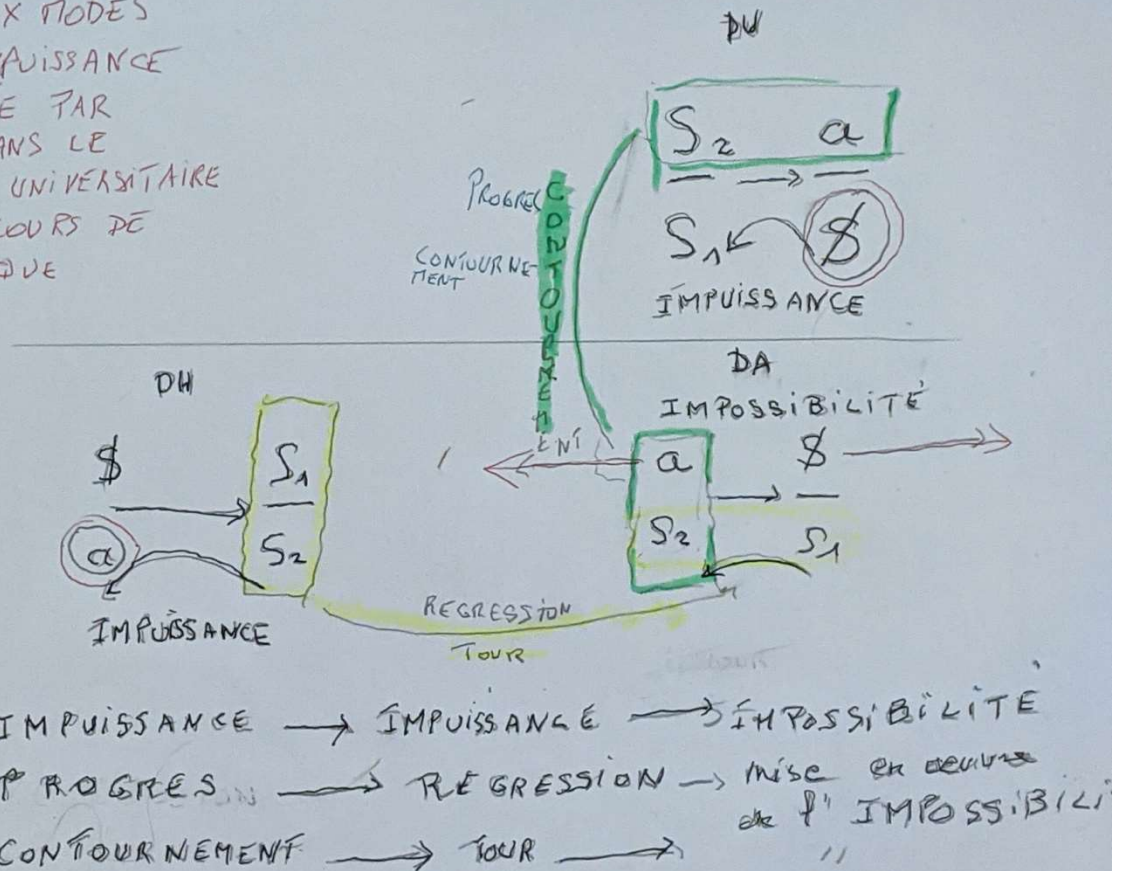 X MODES
PUISSANCE
E PAR
ANS LE
UNIVERSITAIRE
COURS DE
QUE
DU
S2 a
S1 $
IMPUISSANCE
PROGRES
CONTOURNE-
MENT
CONTOURNEM
ENT
DH
$ S1
a S2
IMPUISSANCE
DA
IMPOSSIBILITÉ
a $
S2 S1
REGRESSION
TOUR
IMPUISSANCE → IMPUISSANCE → IMPOSSIBILITÉ
PROGRES → REGRESSION → mise en oeuvre
de l'IMPOSSIBILI
CONTOURNEMENT → TOUR → "